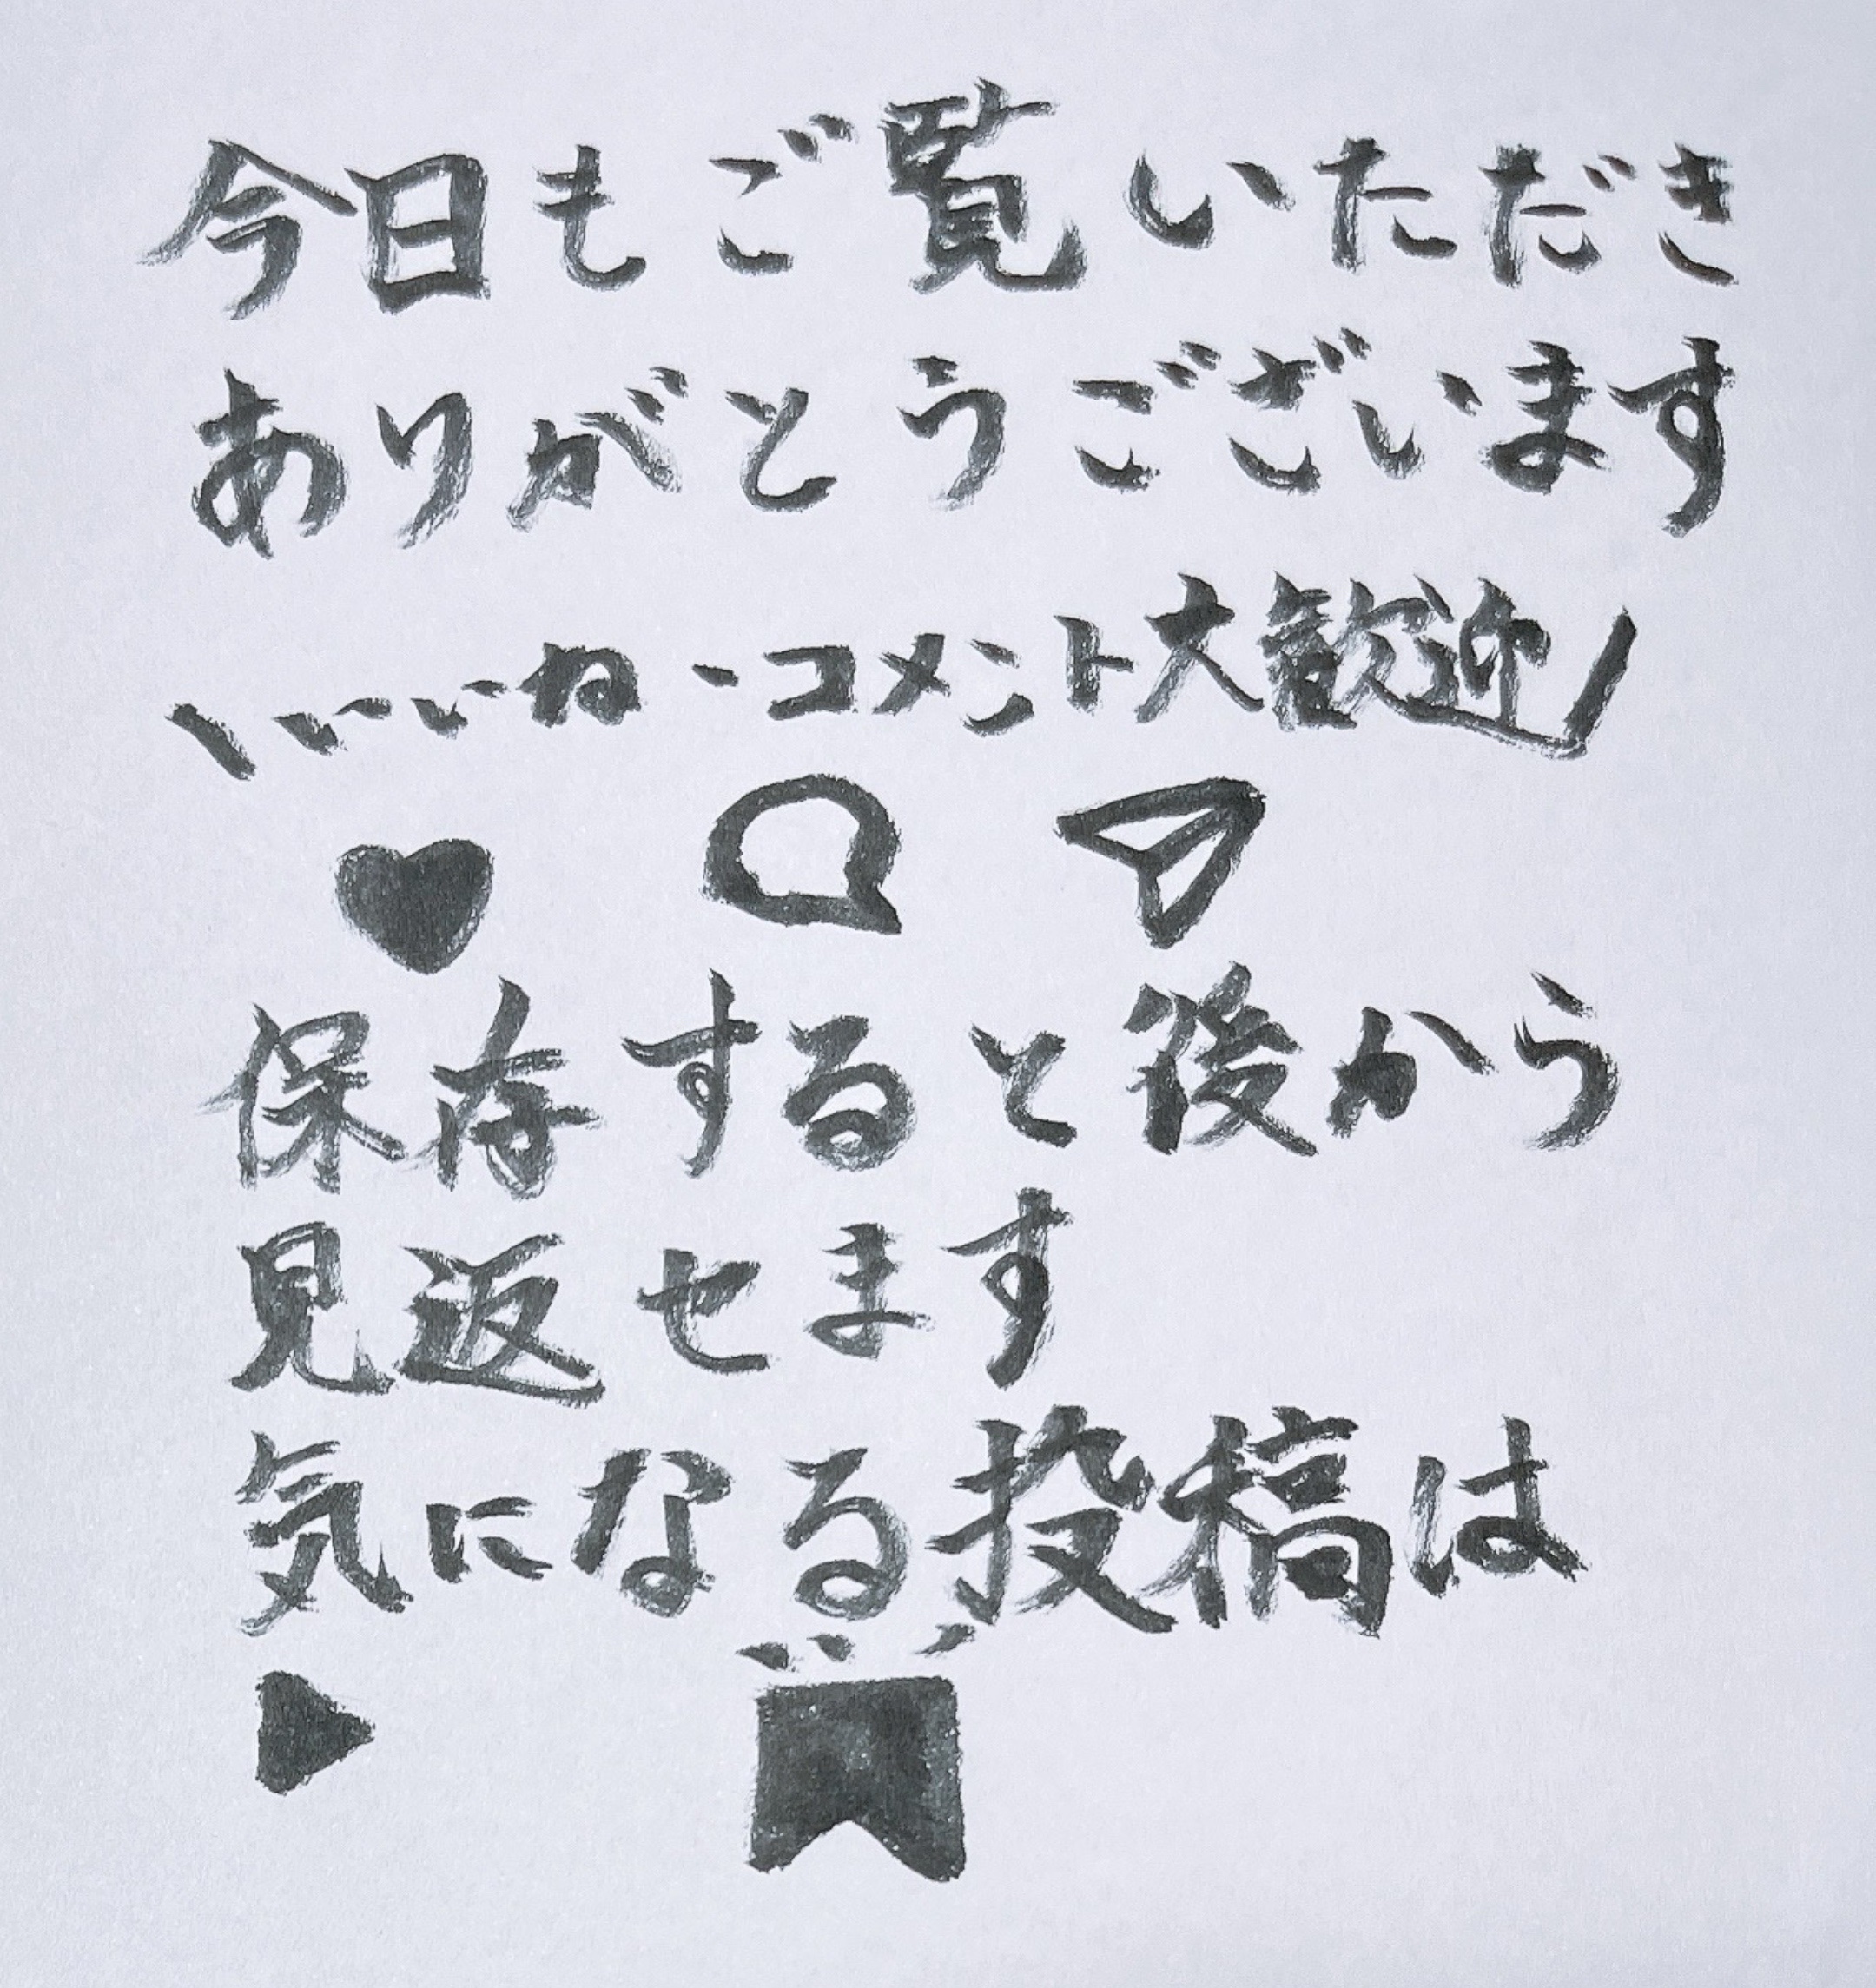 今日もご覧いただき
ありがとうございます
\いいね・コメント大歓迎/
保存すると後から
見返せます
気になる投稿は